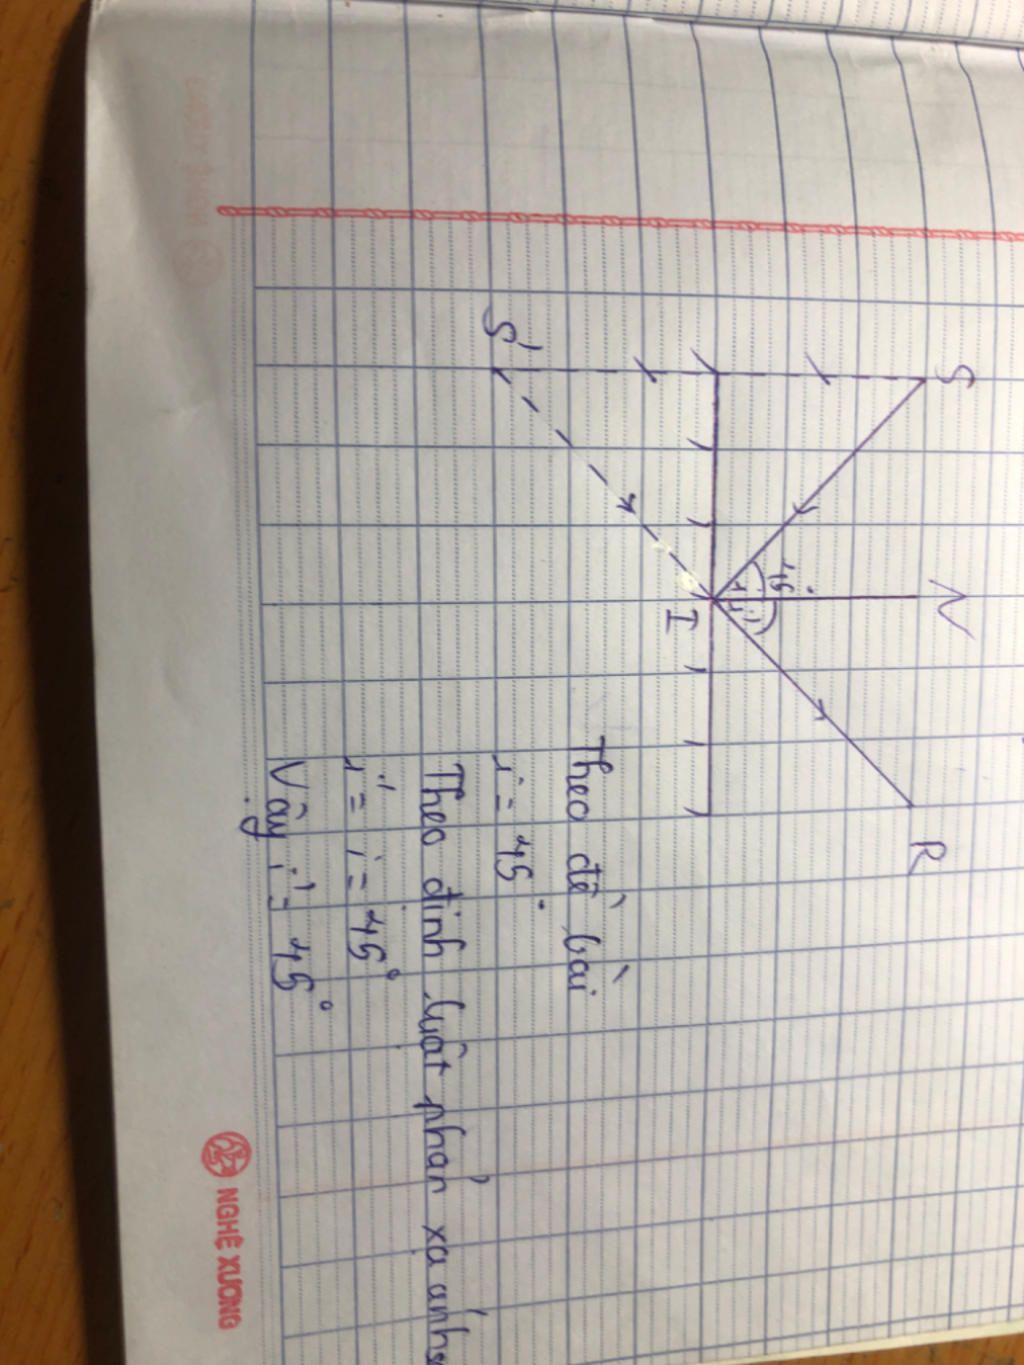 S
N
R
45°
i i'
I
S'
Theo đề bài
i = 45°
Theo định luật phản xạ ánh
i' = i = 45°
Vậy i' = 45°
NGHÊ XUONG